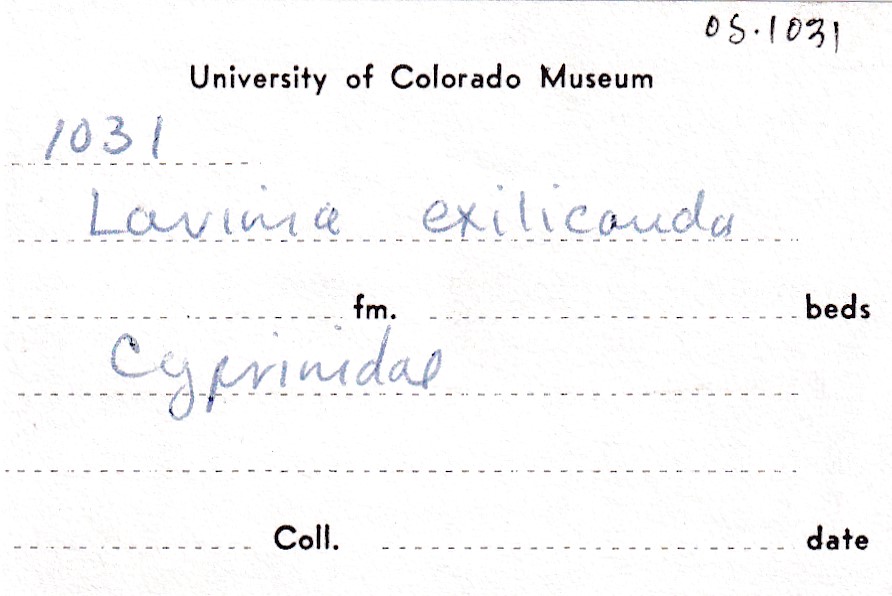 OS.1031
University of Colorado Museum
1031
Lavinia exilicauda
fm. beds
Cyprinidae
Coll. date